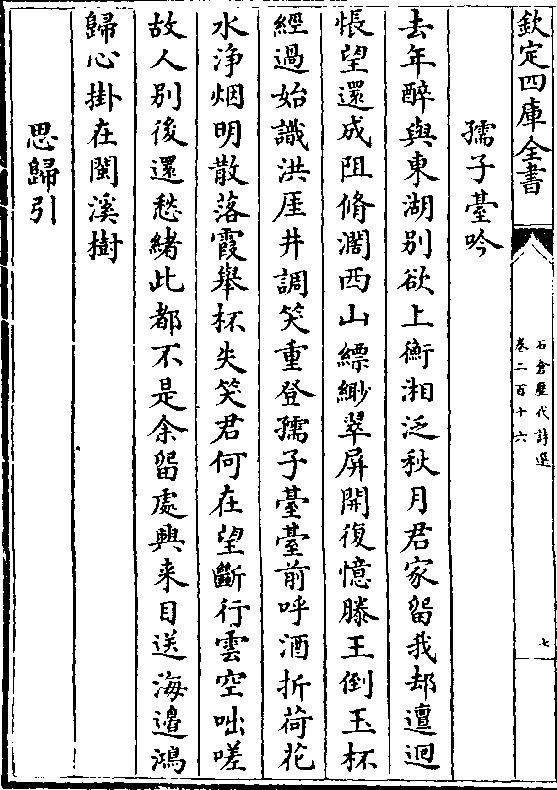 欽定四庫全書
石倉歷代詩選
卷二百十六
七
孺子臺吟
去年醉與東湖別欲上衡湘泛秋月君家留我却邅迴
悵望還成阻脩濶西山縹緲翠屏開復憶滕王倒玉杯
經過始識洪厓井調笑重登孺子臺臺前呼酒折荷花
水净烟明散落霞舉杯失笑君何在望斷行雲空咄嗟
故人别後還愁緒此都不是余留處興来目送海邉鴻
歸心掛在閩溪樹
思歸引